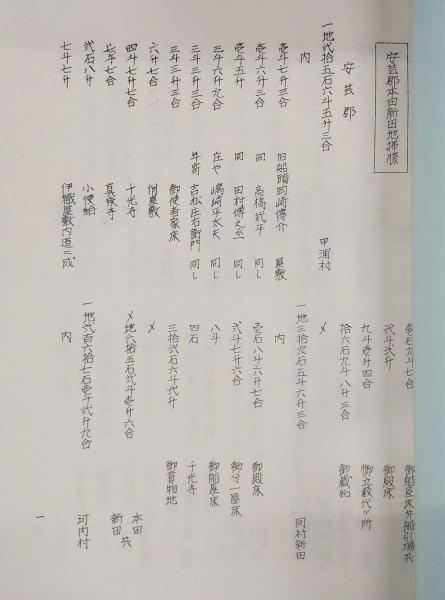 安芸郡本田新田地払牒
安芸郡
一地弐拾五石六斗五升三合 甲浦村
内
壱斗七升三合 旧船頭岡崎傳介 屋敷
壱斗六升三合 同 高橋武平 同し
壱斗五升 同 田村傳之丞 同し
三斗六升九合 庄や 嶋崎平太夫 同し
三斗三升三合 年寄 吉松庄右衛門 同し
三斗三升三合 御使者家床
六升七合 俏屋敷
四斗七升七合 千光寺
七斗七合 真乗寺
弐石八升 小使給
七斗七升 伊織屋敷内道ニ成
壱石九斗七合 御船屋床并船引場共
弐斗弐升 御殿床
九斗壱升四合 御立藪弐ヶ所
拾六石九斗八升三合 御蔵知
〆
一地三拾九石五斗六升三合 同村新田
内
壱石八斗六升七合 御殿床
弐斗七升六合 御分一屋床
八斗 御船屋床
四石 千光寺
三拾弐石六斗弐升 御貢物地
〆
〆地六拾五石弐斗壱升六合 本田新田共
一地弐百六拾七石壱斗弐升九合 河内村
内
一